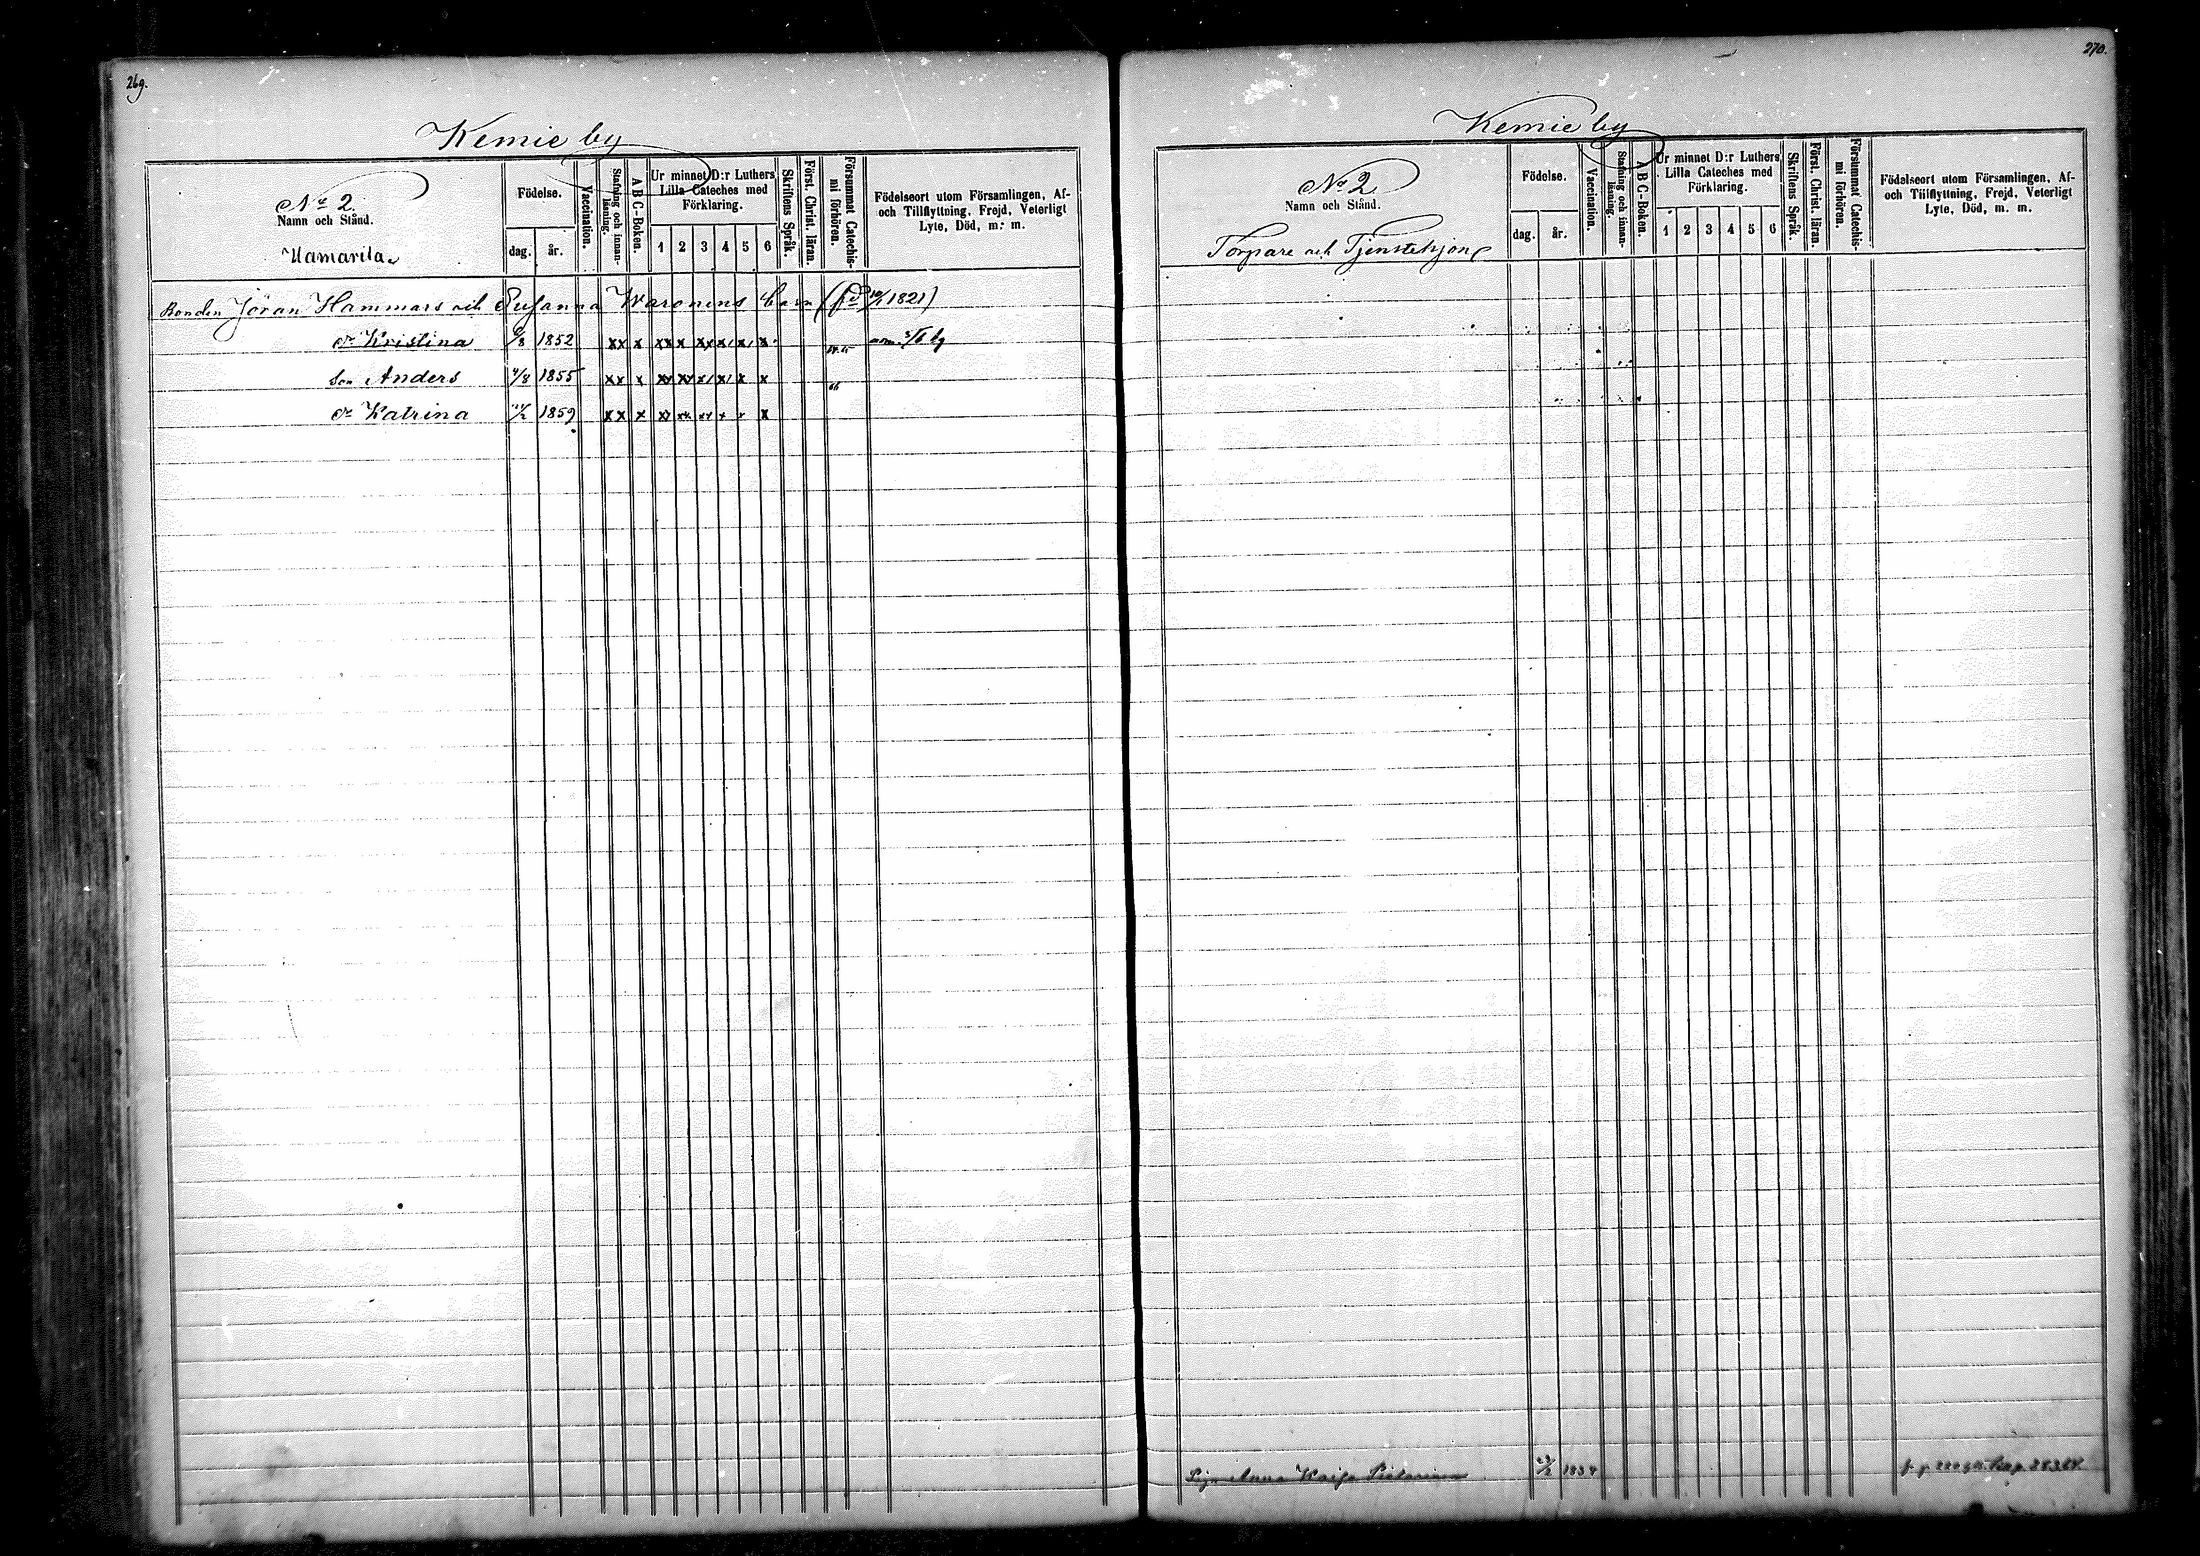 269.
Kemie by
No 2.
Namn och Stånd.
Hamarila
Födelse.
dag.
år.
Vaccination.
Stafning och innan-
läsning.
A B C-Boken.
Ur minnet D:r Luthers
Lilla Cateches med
Förklaring.
1 2 3 4 5 6
Skriftens Språk.
Först. Christ. läran.
Försummat Catechis-
mi förhören.
Födelseort utom Församlingen, Af-
och Tillflyttning, Frejd, Veterligt
Lyte, Död, m. m.
Bonden Jöran Hammars och Susanna Waronens barn (fd 1821)
dr Kristina /8 1852 xx x xx x xx x x x
Son Anders 4/8 1855 xx x xx xx x x x x 66
dr Katrina 1859 xx x xx xx xx x x x
270.
Kemie by
No 2
Namn och Stånd.
Torpare och Tjenstehjon
Födelse.
dag.
år.
Vaccination.
Stafning och innan-
läsning.
A B C-Boken.
Ur minnet D:r Luthers
Lilla Cateches med
Förklaring.
1 2 3 4 5 6
Skriftens Språk.
Först. Christ. läran.
Försummat Catechis-
mi förhören.
Födelseort utom Församlingen, Af-
och Tillflyttning, Frejd, Veterligt
Lyte, Död, m. m.
Anna Kaisa 1834